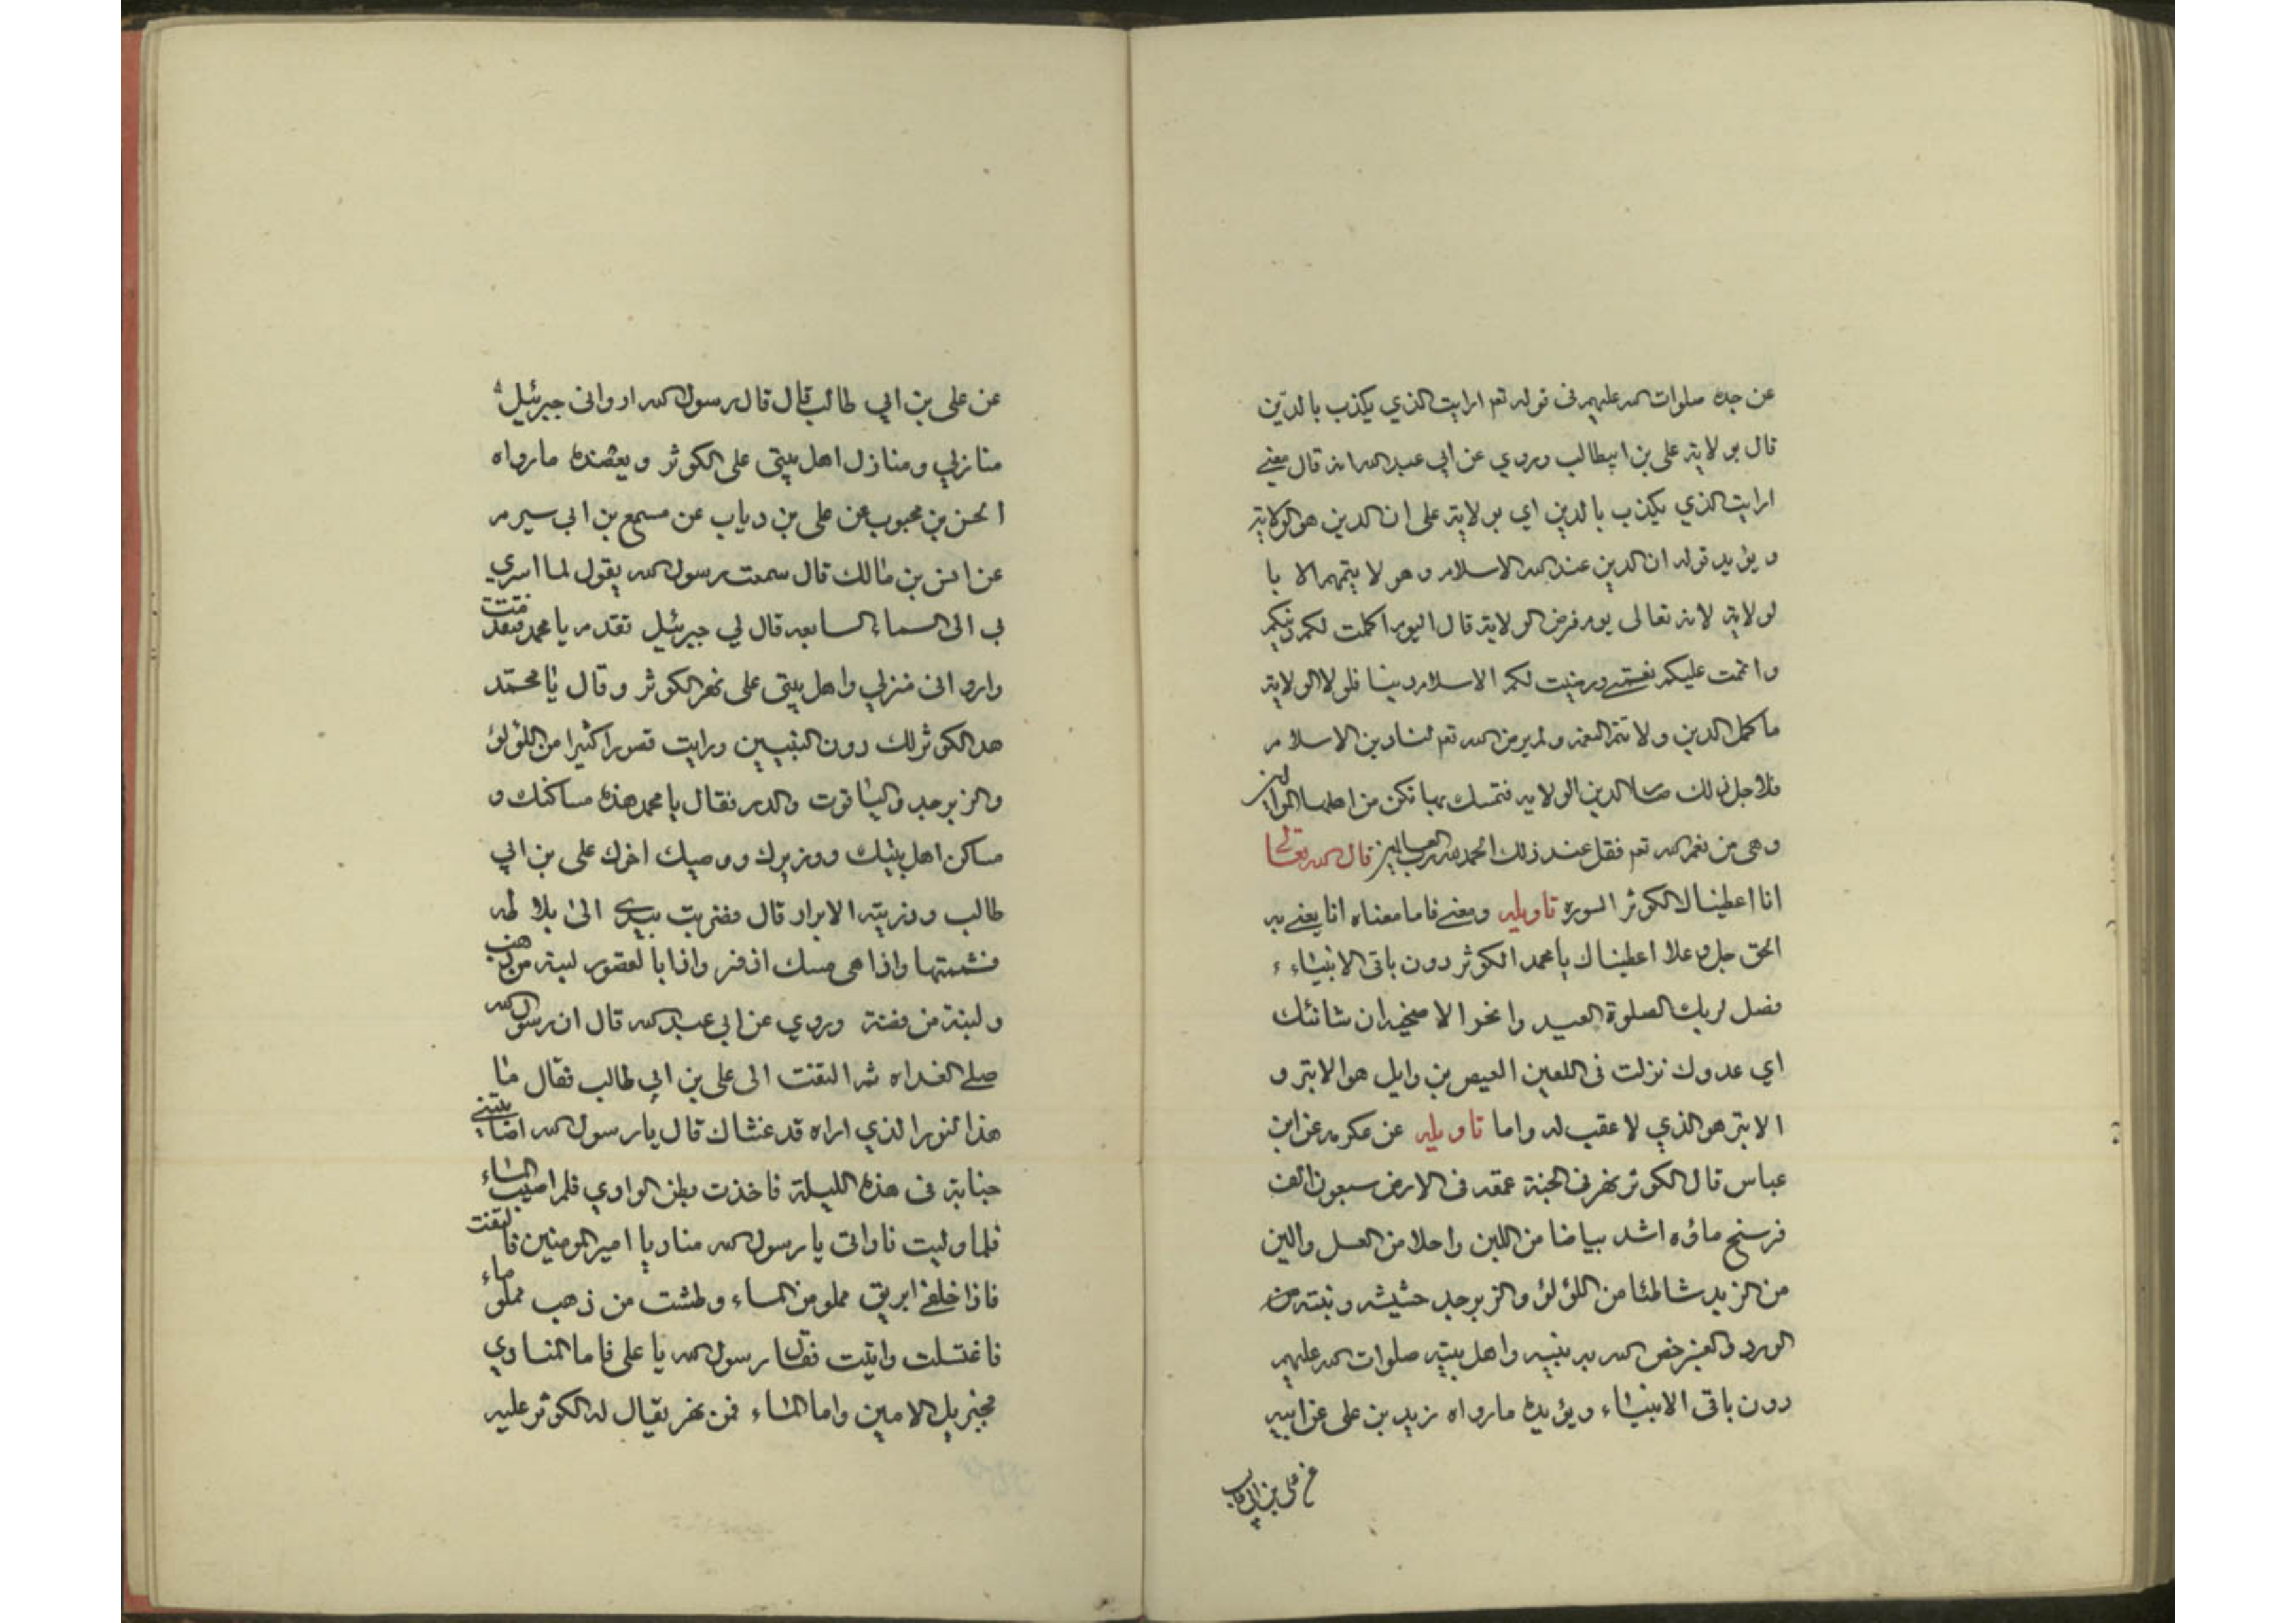 عن جده صلوات الله عليهم في قوله تعم ارايت الذي يكذب بالدين
قال بولاية علي بن ابيطالب وروي عن ابي عبد الله انه قال معني
ارايت الذي يكذب بالدين اي بولاية علي ان الدين هو الولاية
ويؤيد قوله ان الدين عند الله الاسلام وهو لا يتم الا با
لولاية لانه تعالى يوم فرض الولاية قال اليوم اكملت لكم دينكم
واتممت عليكم نعمتي ورضيت لكم الاسلام دينا فلولا الولاية
ما كمل الدين ولا تتم النعمة ولم يرض الله تعم لنا دين الاسلام
فلاجل ذلك الدين الولايه فتمسك بها تكن من اهلها
وهي من نعم الله تعم فقل عند ذلك الحمد لله رب العالمين قال الله تعالى
انا اعطيناك الكوثر السورة تاويله ومعني فاما معناه انا يعني به
الحق جل وعلا اعطيناك يا محمد الكوثر دون باقي الانبياء
فصل لربك الصلوة العيد وانحر الاضحية ان شانئك
اي عدوك نزلت في اللعين العيص بن وايل هو الابتر و
الابتر هو الذي لا عقب له واما تاويله عن عكرمه عن ابن
عباس قال الكوثر نهر في الجنة عمقه في الارض سبعون الف
فرسخ ماؤه اشد بياضا من اللبن واحلا من العسل والين
من الزبد شاطئا من اللؤلؤ والزبرجد حشيشه ونبته من
الورد والعنبر خص الله به نبيه واهل بيته صلوات الله عليهم
دون باقي الانبياء ويؤيده مارواه زيد بن علي عن ابيه
عن علي بن ابي طالب
عن علي بن ابي طالب قال قال رسول الله اروانى جبرئيل
منازلي ومنازل اهل بيتي على الكوثر ويعضده مارواه
الحسن بن محبوب عن علي بن دياب عن مسمع بن ابي سيرم
عن انس بن مالك قال سمعت رسول الله يقول لما اسري
بي الى السماء السابعه قال لي جبرئيل تقدم يا محمد فتقدمت
واروانى منزلي واهل بيتي على نهر الكوثر وقال يا محمد
هد الكوثر لك دون النبيين ورايت قصورا كثيرا من اللؤلؤ
والزبرجد والياقوت والدر فقال يا محمد هذه مساكنك و
مساكن اهل بيتك ووزيرك ووصيك اخوك علي بن ابي
طالب وذريته الابرار قال فضربت بيدي الى بلاطه
فشممتها واذا هي مسك اذفر واذا بالقصور لبنة من ذهب
ولبنة من فضة وروي عن ابي عبد الله قال ان رسول الله
صلى الغداه ثم التفت الى علي بن ابي طالب فقال ما
هذا النور الذي اراه قد غشاك قال يا رسول الله اصابتني
جنابة في هذه الليلة فاخذت بطن الوادي فلم اصيب الماء
فلما وليت ناداني يا رسول الله مناد يا امير المومنين فالتفت
فاذا خلفي ابريق مملو من الماء وطشت من ذهب مملو ماء
فاغتسلت واتيت فقال رسول الله يا علي فاما المنادي
فجبريل الامين واما الماء فمن نهر يقال له الكوثر عليه